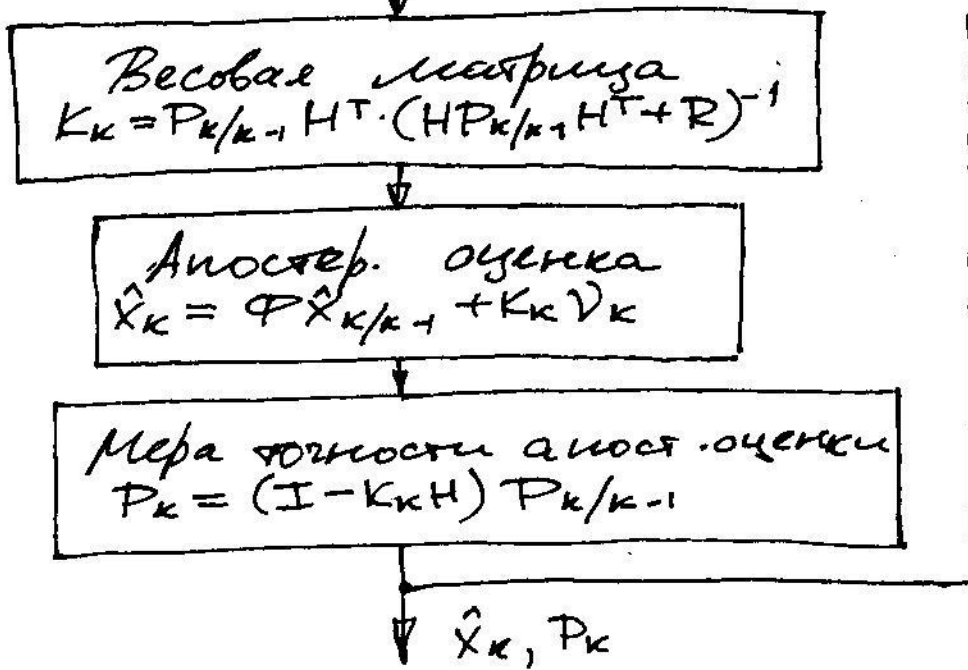 Весовая матрица
Kк = Pк/к-1 Hᵀ·(HPк/к-1 Hᵀ + R)⁻¹
Апостер. оценка
x̂к = Φx̂к/к-1 + Kк νк
Мера точности апост. оценки
Pк = (I - KкH) Pк/к-1
x̂к, Pк